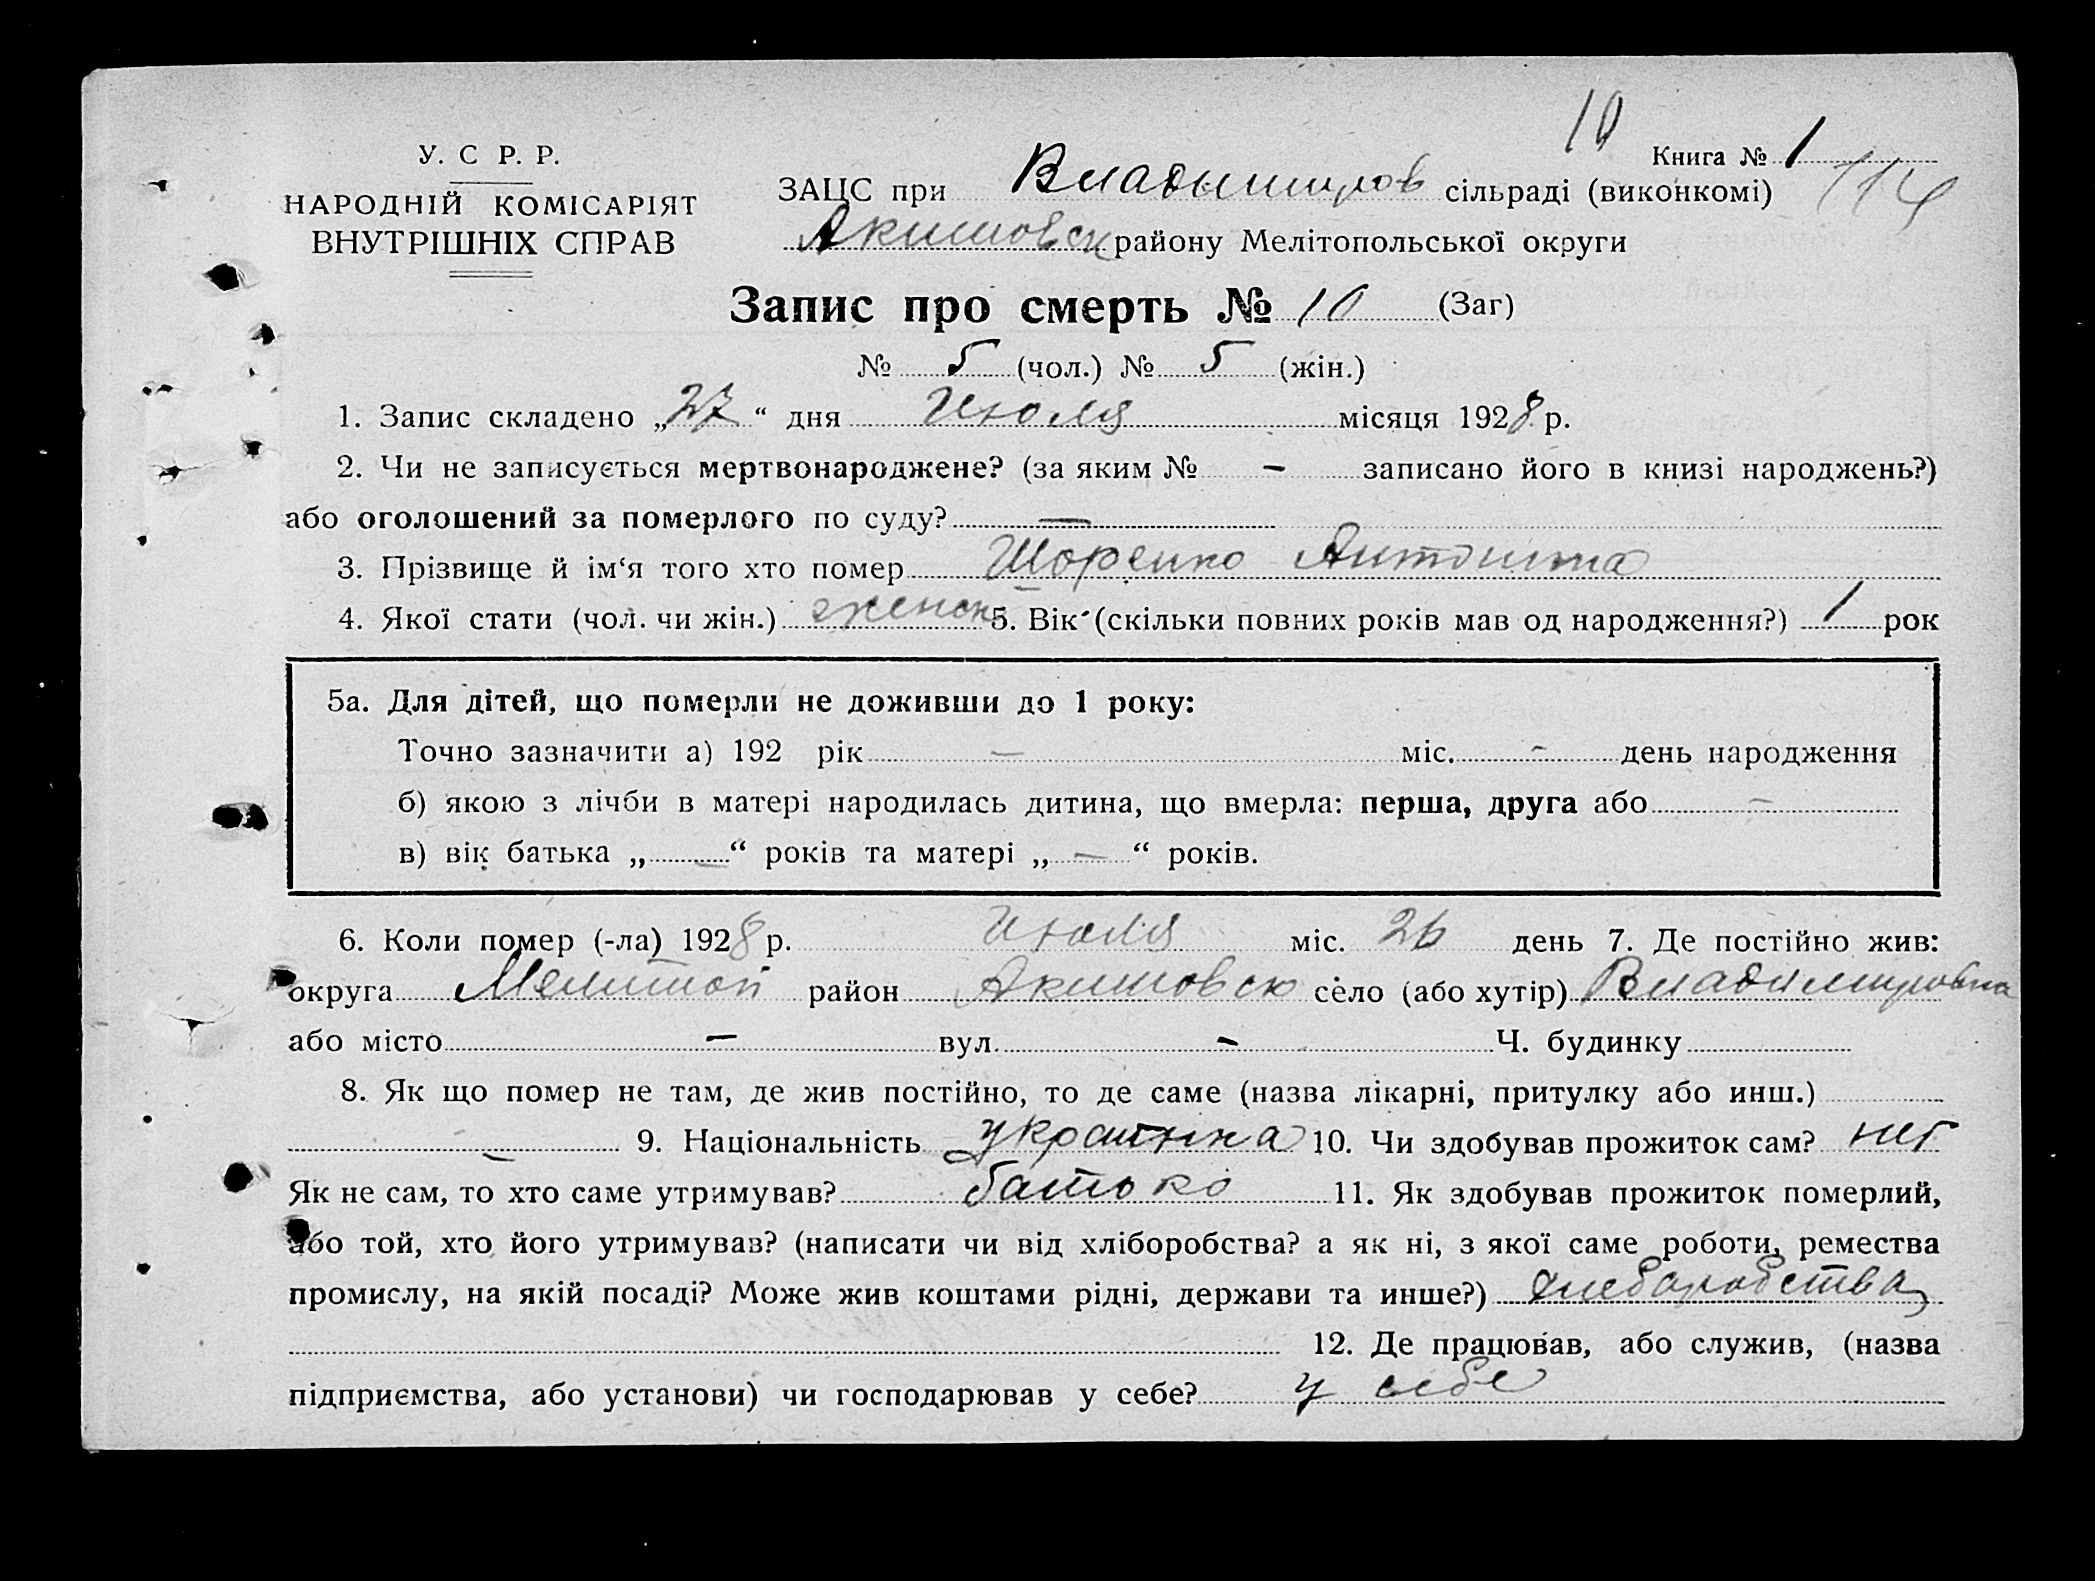 10
У. С. Р. Р.
Книга № 1
НАРОДНІЙ КОМІСАРІЯТ
ЗАЦС при Владимиров сільраді (виконкомі) 114
ВНУТРІШНІХ СПРАВ
Акимовск району Мелітопольської округи
Запис про смерть № 10 (Заг)
№ 5 (чол.) № 5 (жін.)
1. Запис складено „27“ дня Июля місяця 1928 р.
2. Чи не записується мертвонароджене? (за яким № – записано його в книзі народжень?)
або оголошений за померлого по суду? –
3. Прізвище й ім‘я того хто помер Шоренко Антонина
4. Якої стати (чол. чи жін.) женск 5. Вік (скільки повних років мав од народження?) 1 рок
5а. Для дітей, що померли не доживши до 1 року:
Точно зазначити а) 192 рік – міс. – день народження
б) якою з лічби в матері народилась дитина, що вмерла: перша, друга або –
в) вік батька „ – “ років та матері „ – “ років.
6. Коли помер (-ла) 1928 р. Июля міс. 26 день 7. Де постійно жив:
округа Мелитоп район Акимовск село (або хутір) Владимировка
або місто – вул. – Ч. будинку
8. Як що помер не там, де жив постійно, то де саме (назва лікарні, притулку або инш.)
– 9. Національність украинка 10. Чи здобував прожиток сам? нет
Як не сам, то хто саме утримував? батько 11. Як здобував прожиток померлий,
або той, хто його утримував? (написати чи від хліборобства? а як ні, з якої саме роботи, ремества
промислу, на якій посаді? Може жив коштами рідні, держави та инше?) хлеборобства
12. Де працював, або служив, (назва
підприємства, або установи) чи господарював у себе? у себе